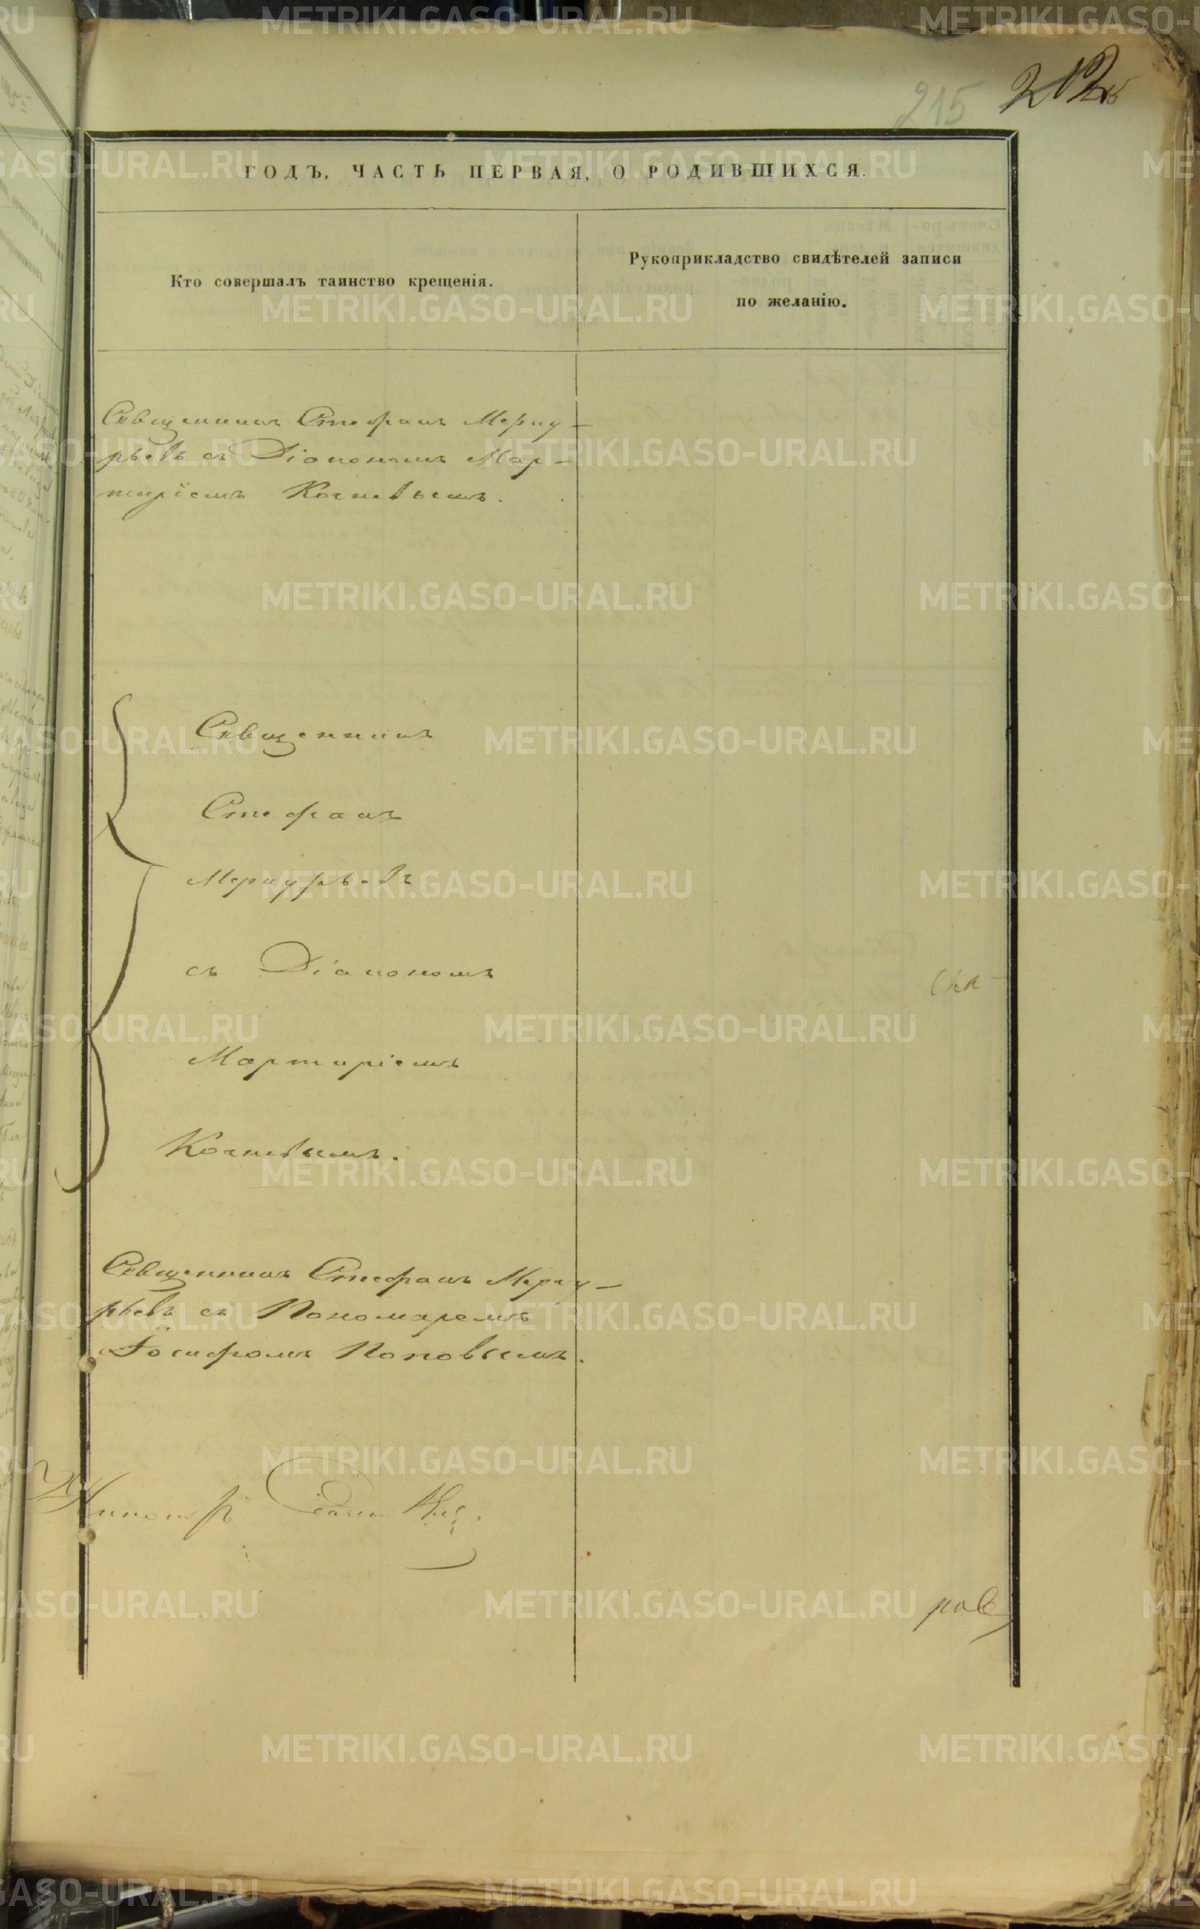 215
ГОДЪ, ЧАСТЬ ПЕРВАЯ, О РОДИВШИХСЯ.
Кто совершалъ таинство крещенія.
Рукоприкладство свидѣтелей записи
по желанію.
Священникъ Стефанъ Мерку-
рьевъ съ Діакономъ Мар-
тиріемъ Кочневымъ.
Священникъ
Стефанъ
Меркурьевъ
съ Діакономъ
Мартиріемъ
Кочневымъ.
Священникъ Стефанъ Мерку-
рьевъ съ Пономаремъ
Іосифомъ Поповымъ.
METRIKI.GASO-URAL.RU